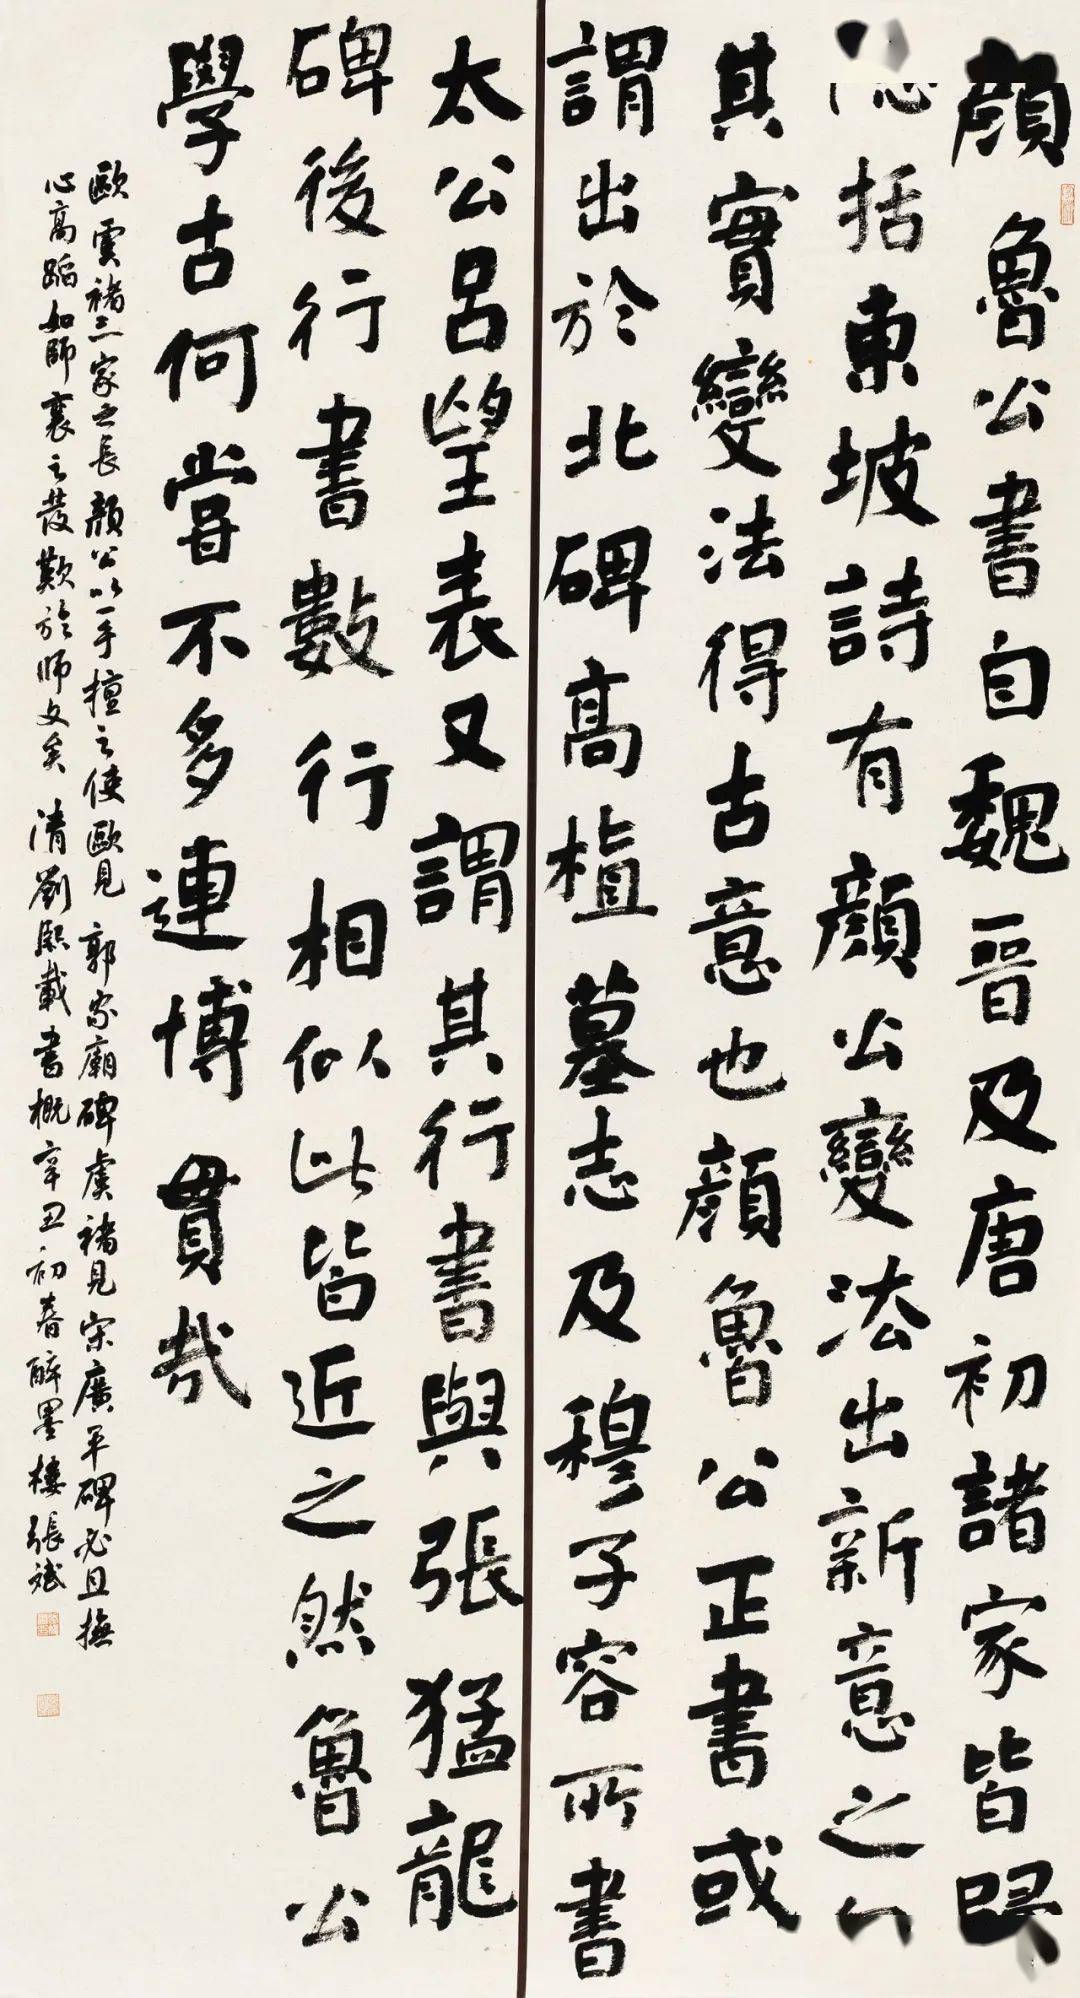 顔魯公書自魏晋及唐初諸家皆歸
括東坡詩有顔公變法出新意之
其實變法得古意也顔魯公正書或
謂出於北碑高植墓志及穆子容所書
太公吕望表又謂其行書與張猛龍
碑後行書數行相似此皆近之然魯公
學古何嘗不多連博貫哉
歐虞褚三家之長顔公以一手擅之使歐見郭家廟碑虞褚見宋廣平碑必且撫
心高蹈如師襄之發歎於师文矣清劉熙載書概辛丑初春醉墨樓張斌